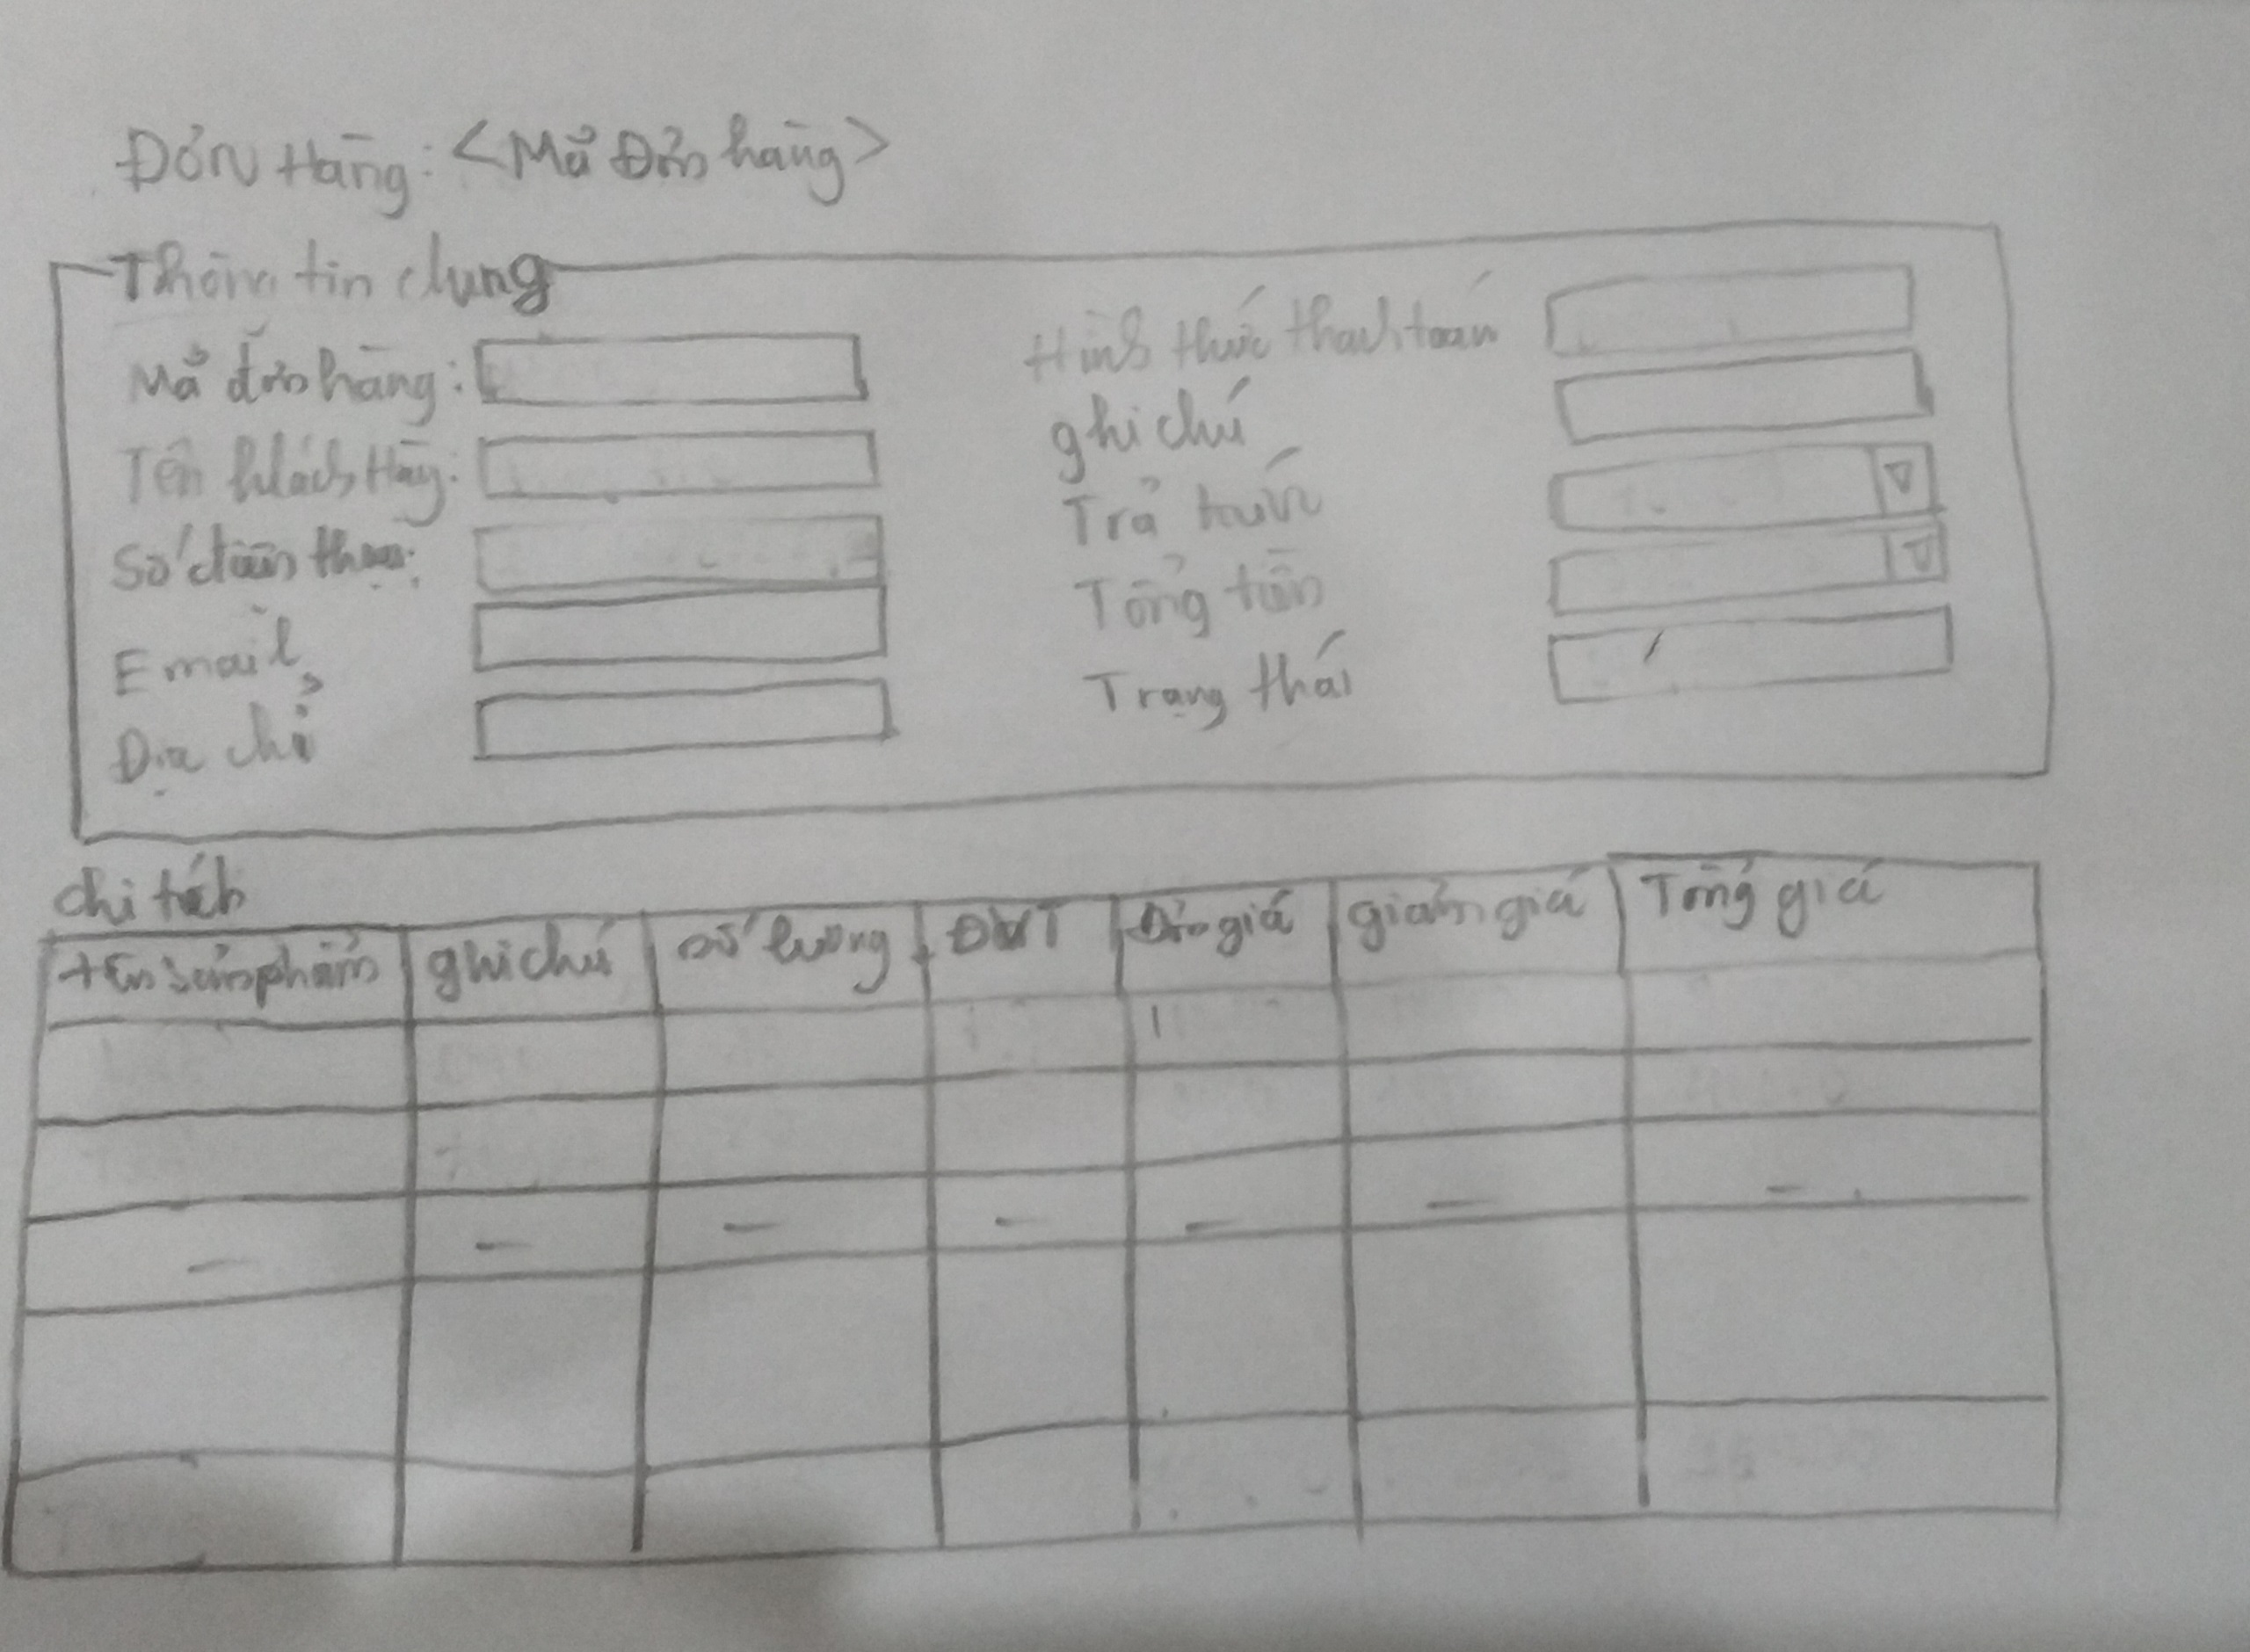 Đơn Hàng: <Mã Đơn hàng>
Thông tin chung
Mã đơn hàng:
Tên khách Hàng:
Số điện thoại:
Email
Địa chỉ
Hình thức thanh toán
ghi chú
Trả trước
Tổng tiền
Trạng thái
chi tiết
tên sản phẩm ghi chú số lượng ĐVT Đơn giá giảm giá Tổng giá